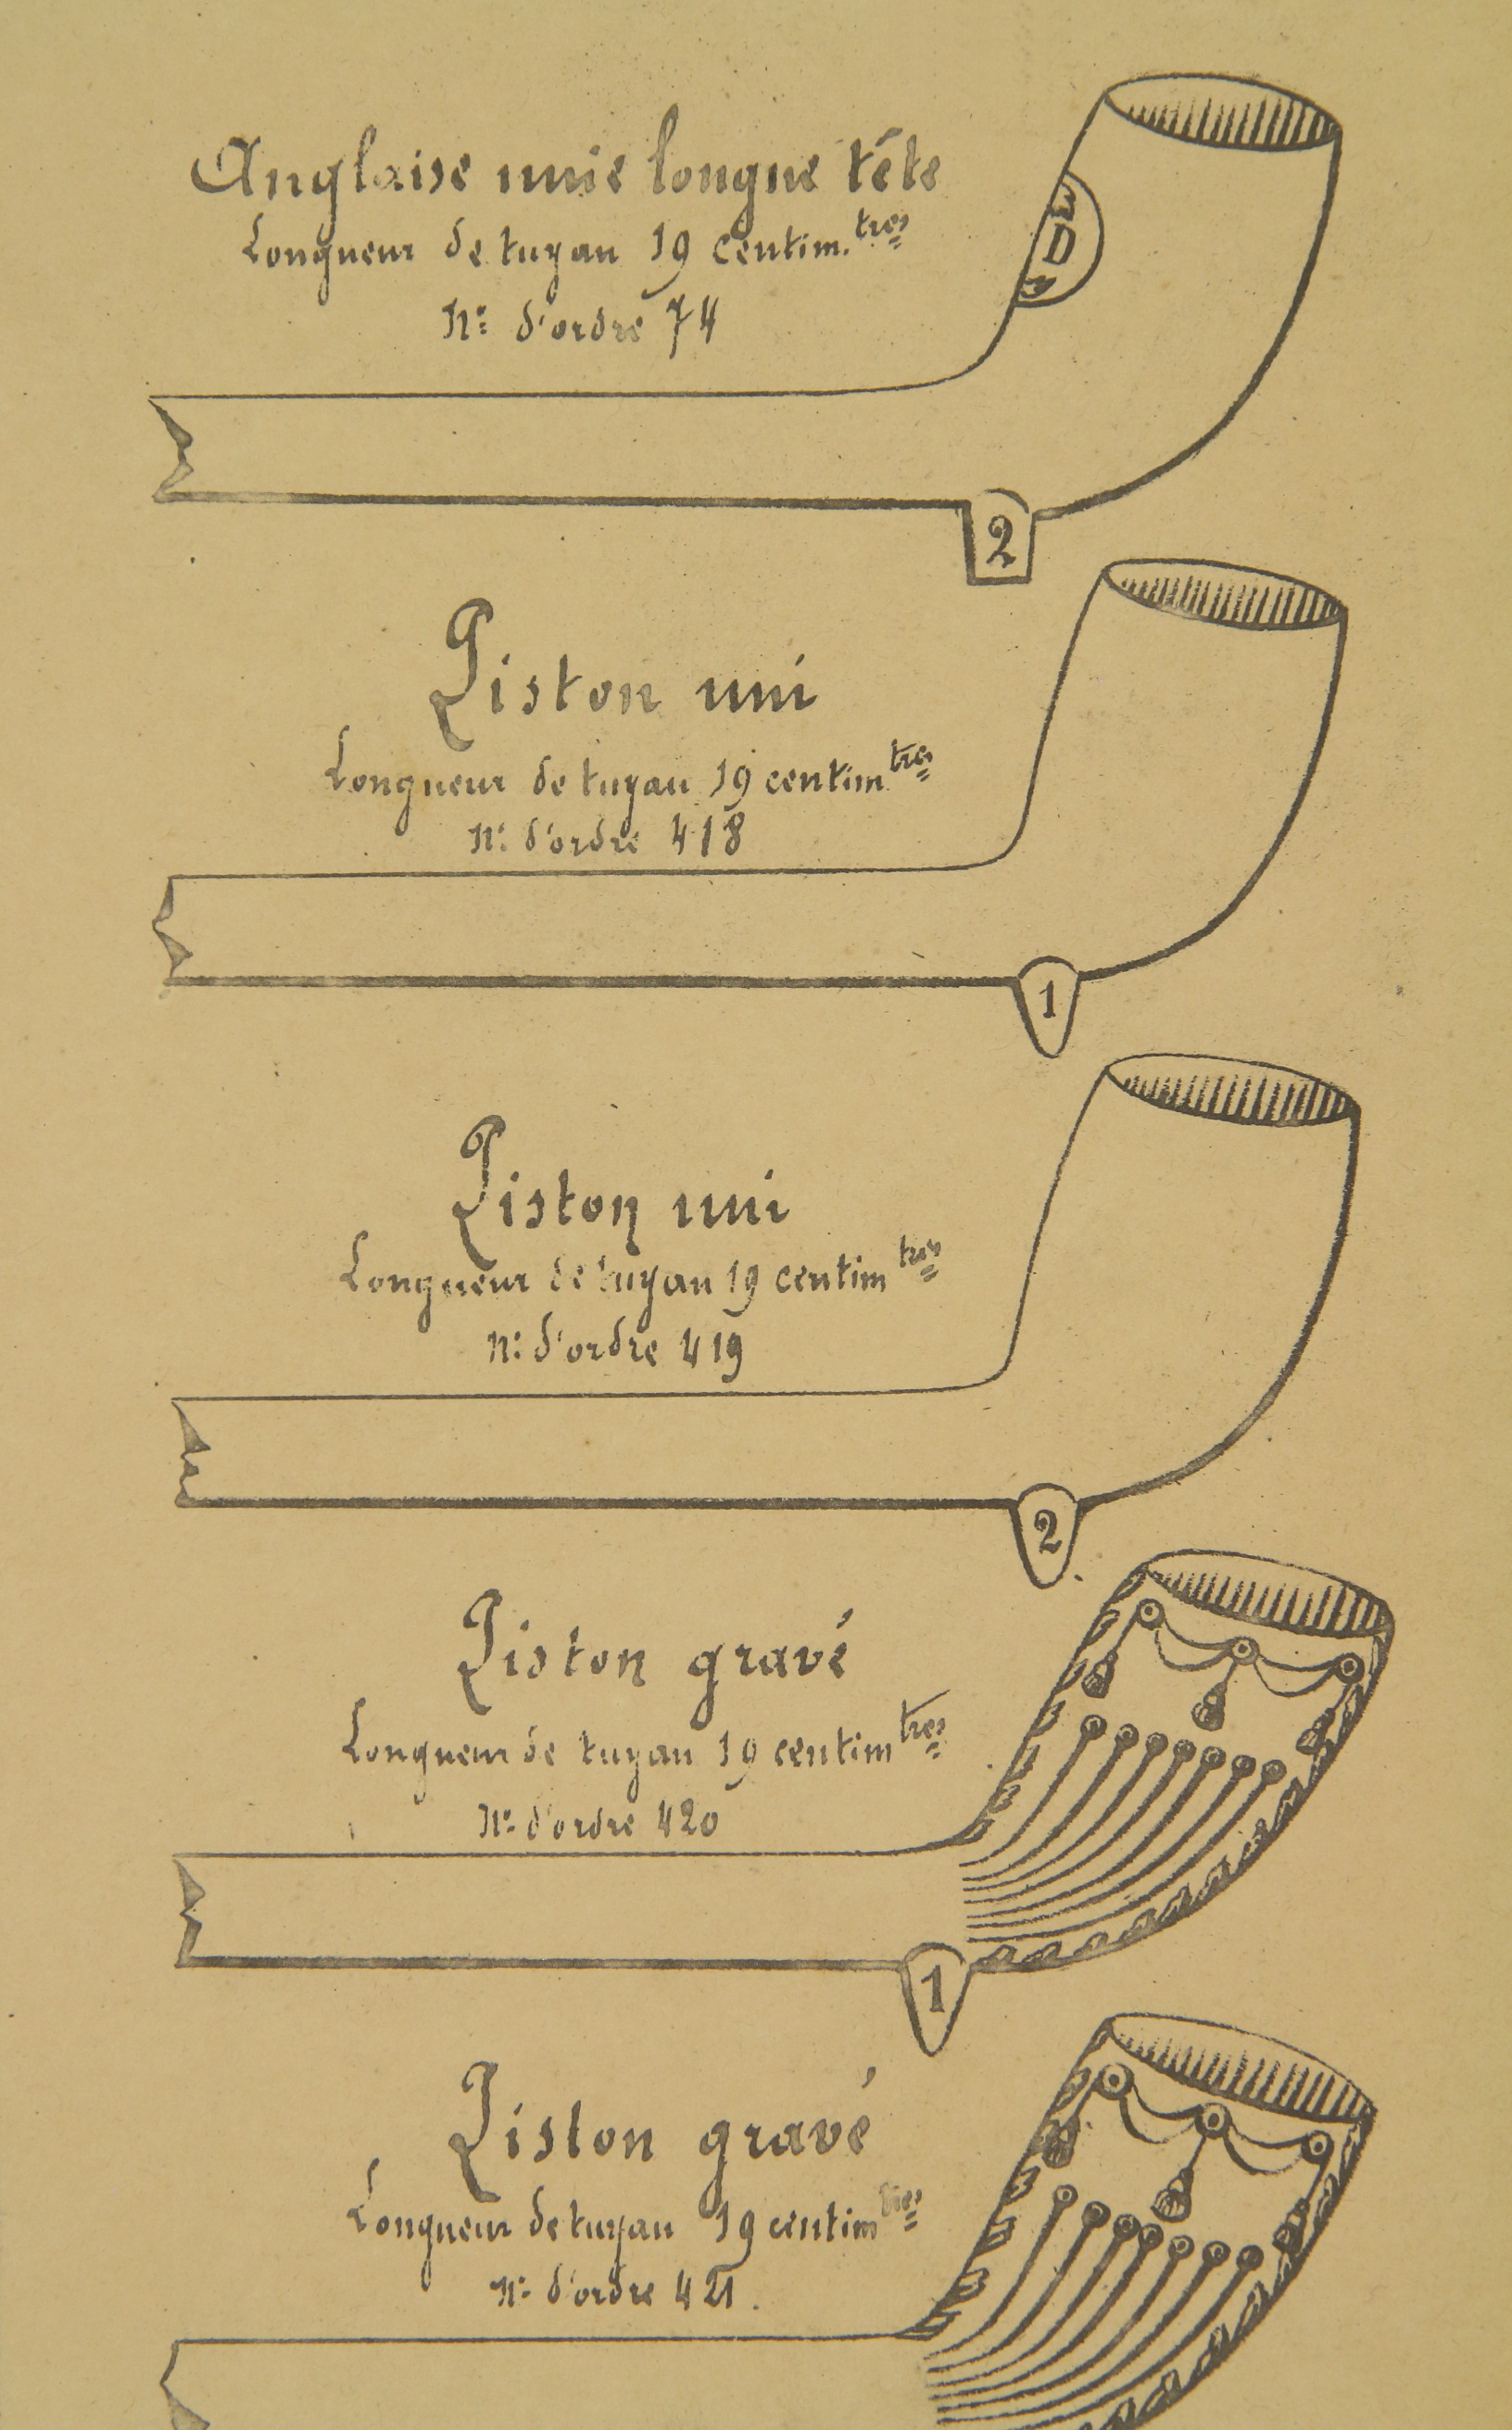 Anglaise unie longue tête
Longueur de tuyau 19 centim.tres
No d'ordre 74
D
2
Piston uni
Longueur de tuyau 19 centimtres
No d'ordre 418
1
Piston uni
Longueur de tuyau 19 centimtres
No d'ordre 419
2
Piston gravé
Longueur de tuyau 19 centimtres
No d'ordre 420
1
Piston gravé
Longueur de tuyau 19 centimtres
No d'ordre 421.